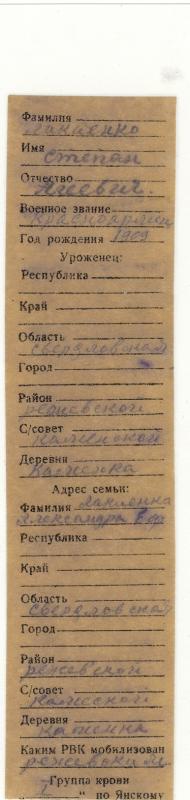 Фамилия
Имя
Степан
Отчество
Военное звание
Красноармеец
Год рождения 1909
Уроженец:
Республика
Край
Область
Свердловская
Город
Район
режевской
С/совет
каменской
Деревня
Каменка
Адрес семьи:
Фамилия
Александра
Республика
Край
Область
Свердловская
Город
Район
режевской
С/совет
Деревня
каменка
Каким РВК мобилизован
режевским
Группа крови
" по Янскому